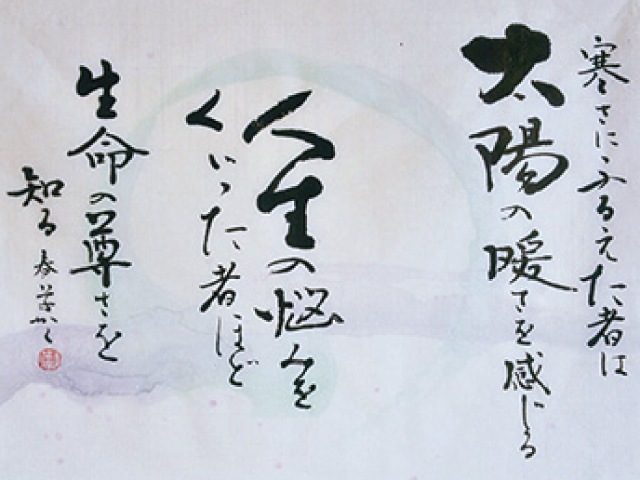 寒さにふるえた者は
太陽の暖さを感じる
人生の悩みを
くぐった者ほど
生命の尊さを
知る